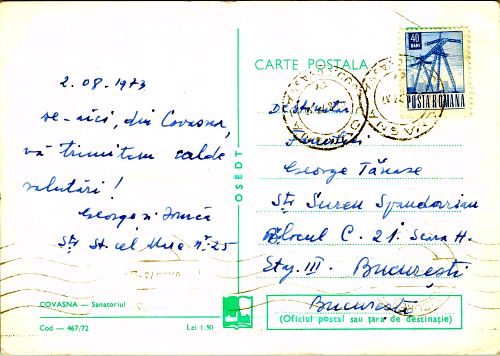 CARTE POSTALA
40
BANI
POSTA ROMANA
2.08.1973
De-aici, din Covasna,
vă trimitem calde
salutări!
George și
Str. St. cel Mare nr. 25
COVASNA — Sanatoriul
Cod — 467/72
Lei 1.50
OSEDT
Destinatar,
Familiei
George Tănase
Str. Suren Spandarian
Blocul C. 21. Scara H.
Etaj. III. București
București
(Oficiul postal sau țara de destinație)